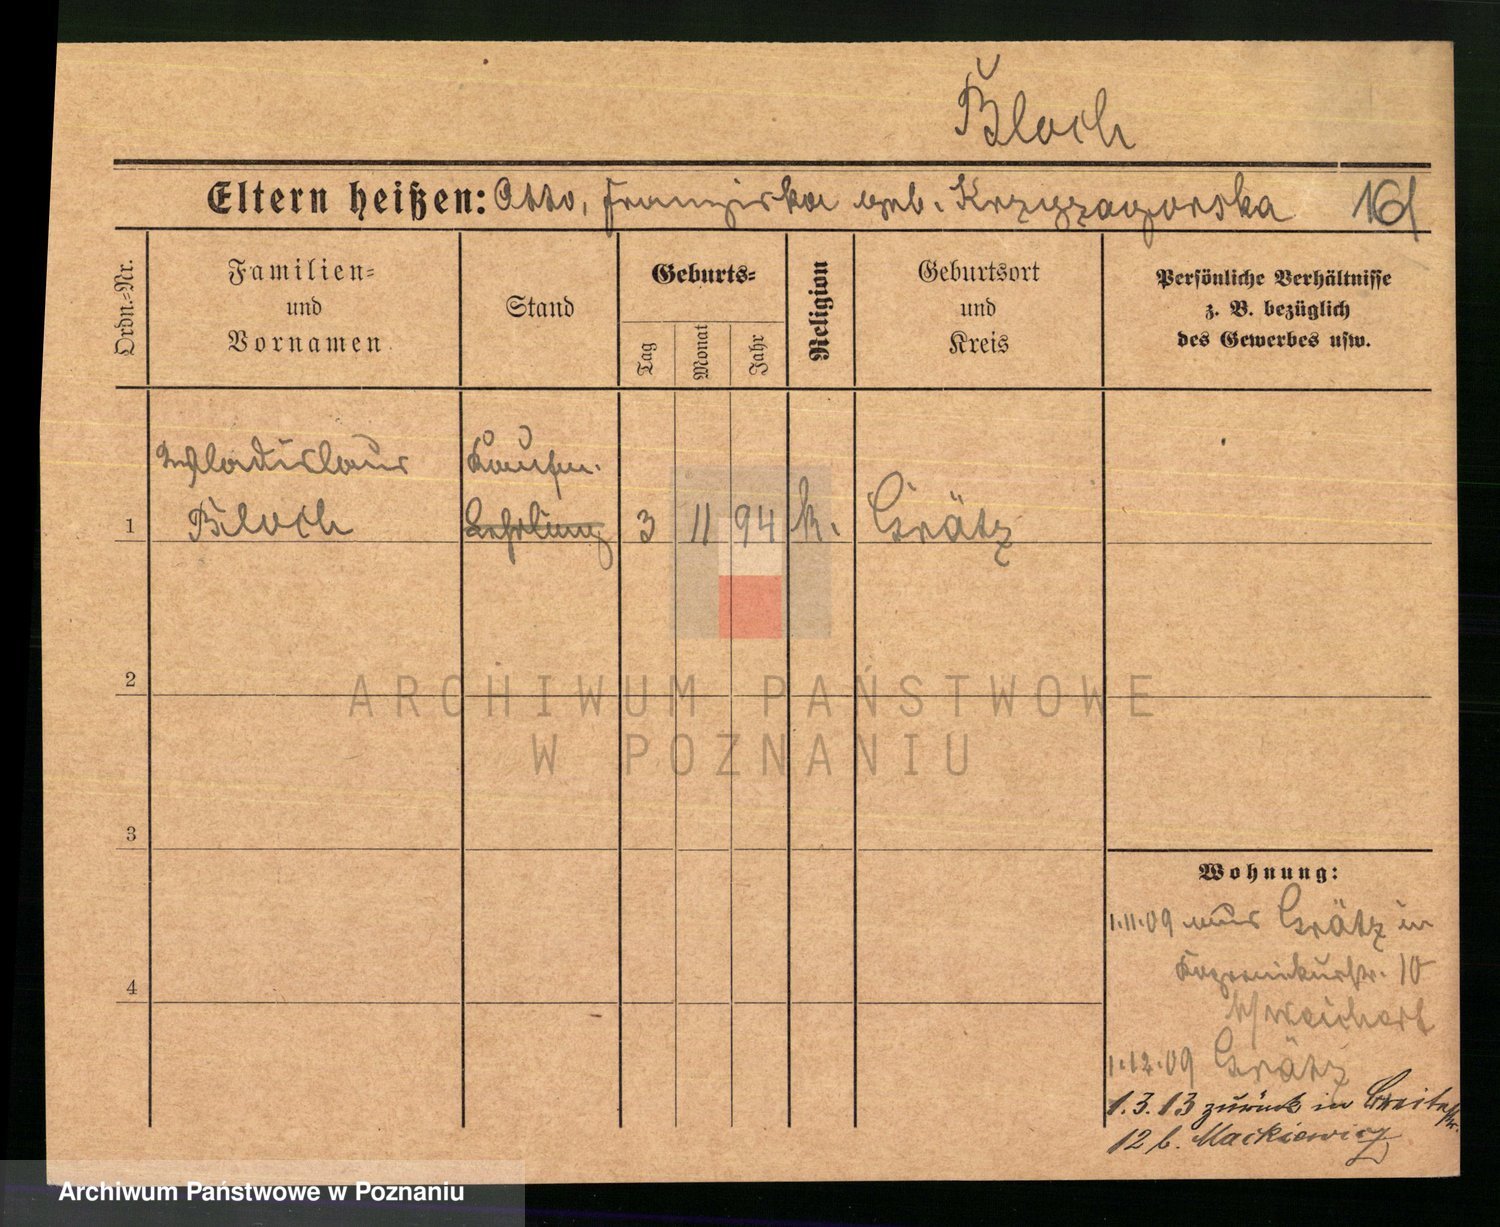 Bloch
Eltern heißen: Otto, Franziska geb. Krzyzagorska 16
Ordn.-Nr.
Familien- und Vornamen
Stand
Geburts-
Tag
Monat
Jahr
Religion
Geburtsort und Kreis
Persönliche Verhältnisse
z. B. bezüglich
des Gewerbes usw.
Wladislaus Kaufm.
1 Bloch Lehrling 3 11 94 k. Grätz
2
3
4
Wohnung:
1.11.09 aus Grätz in
10
b/Weichert
1.12.09 Grätz
1.3.13 zurück in Breitestr.
12 b. Mackiewicz
ARCHIWUM PAŃSTWOWE
W POZNANIU
Archiwum Państwowe w Poznaniu